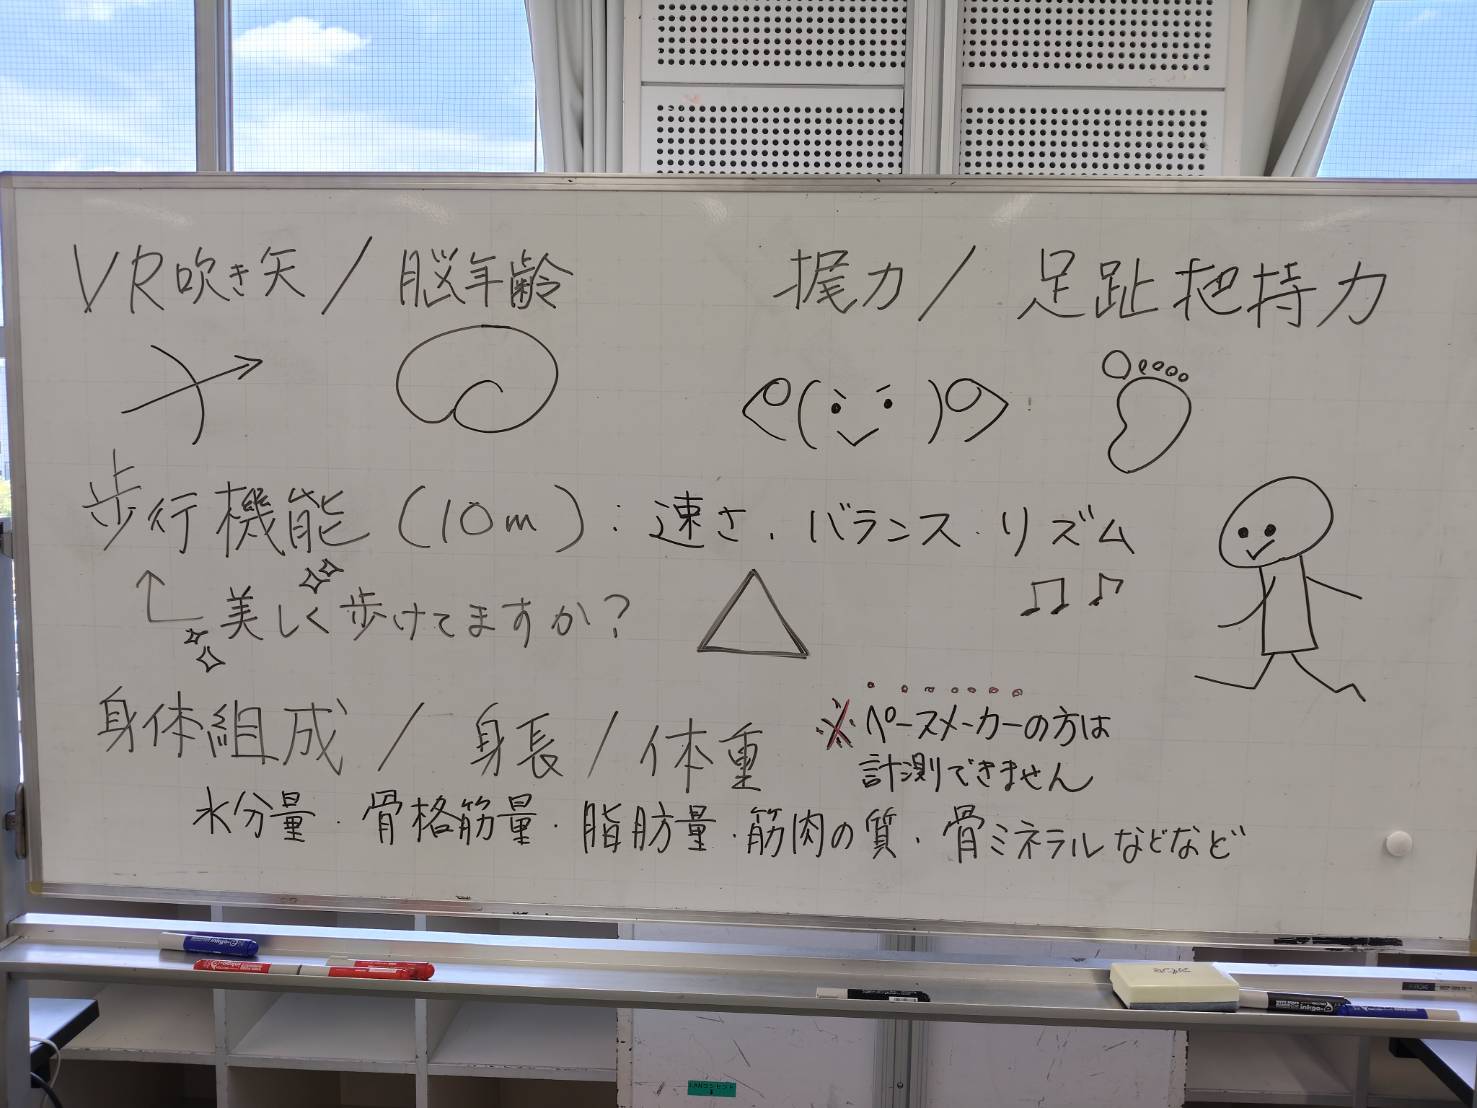 VR吹き矢 / 脳年齢
握力 / 足趾把持力
歩行機能 (10m) : 速さ、バランス・リズム
美しく歩けてますか?
身体組成 / 身長 / 体重
※ペースメーカーの方は
計測できません
水分量・骨格筋量・脂肪量・筋肉の質・骨ミネラルなどなど